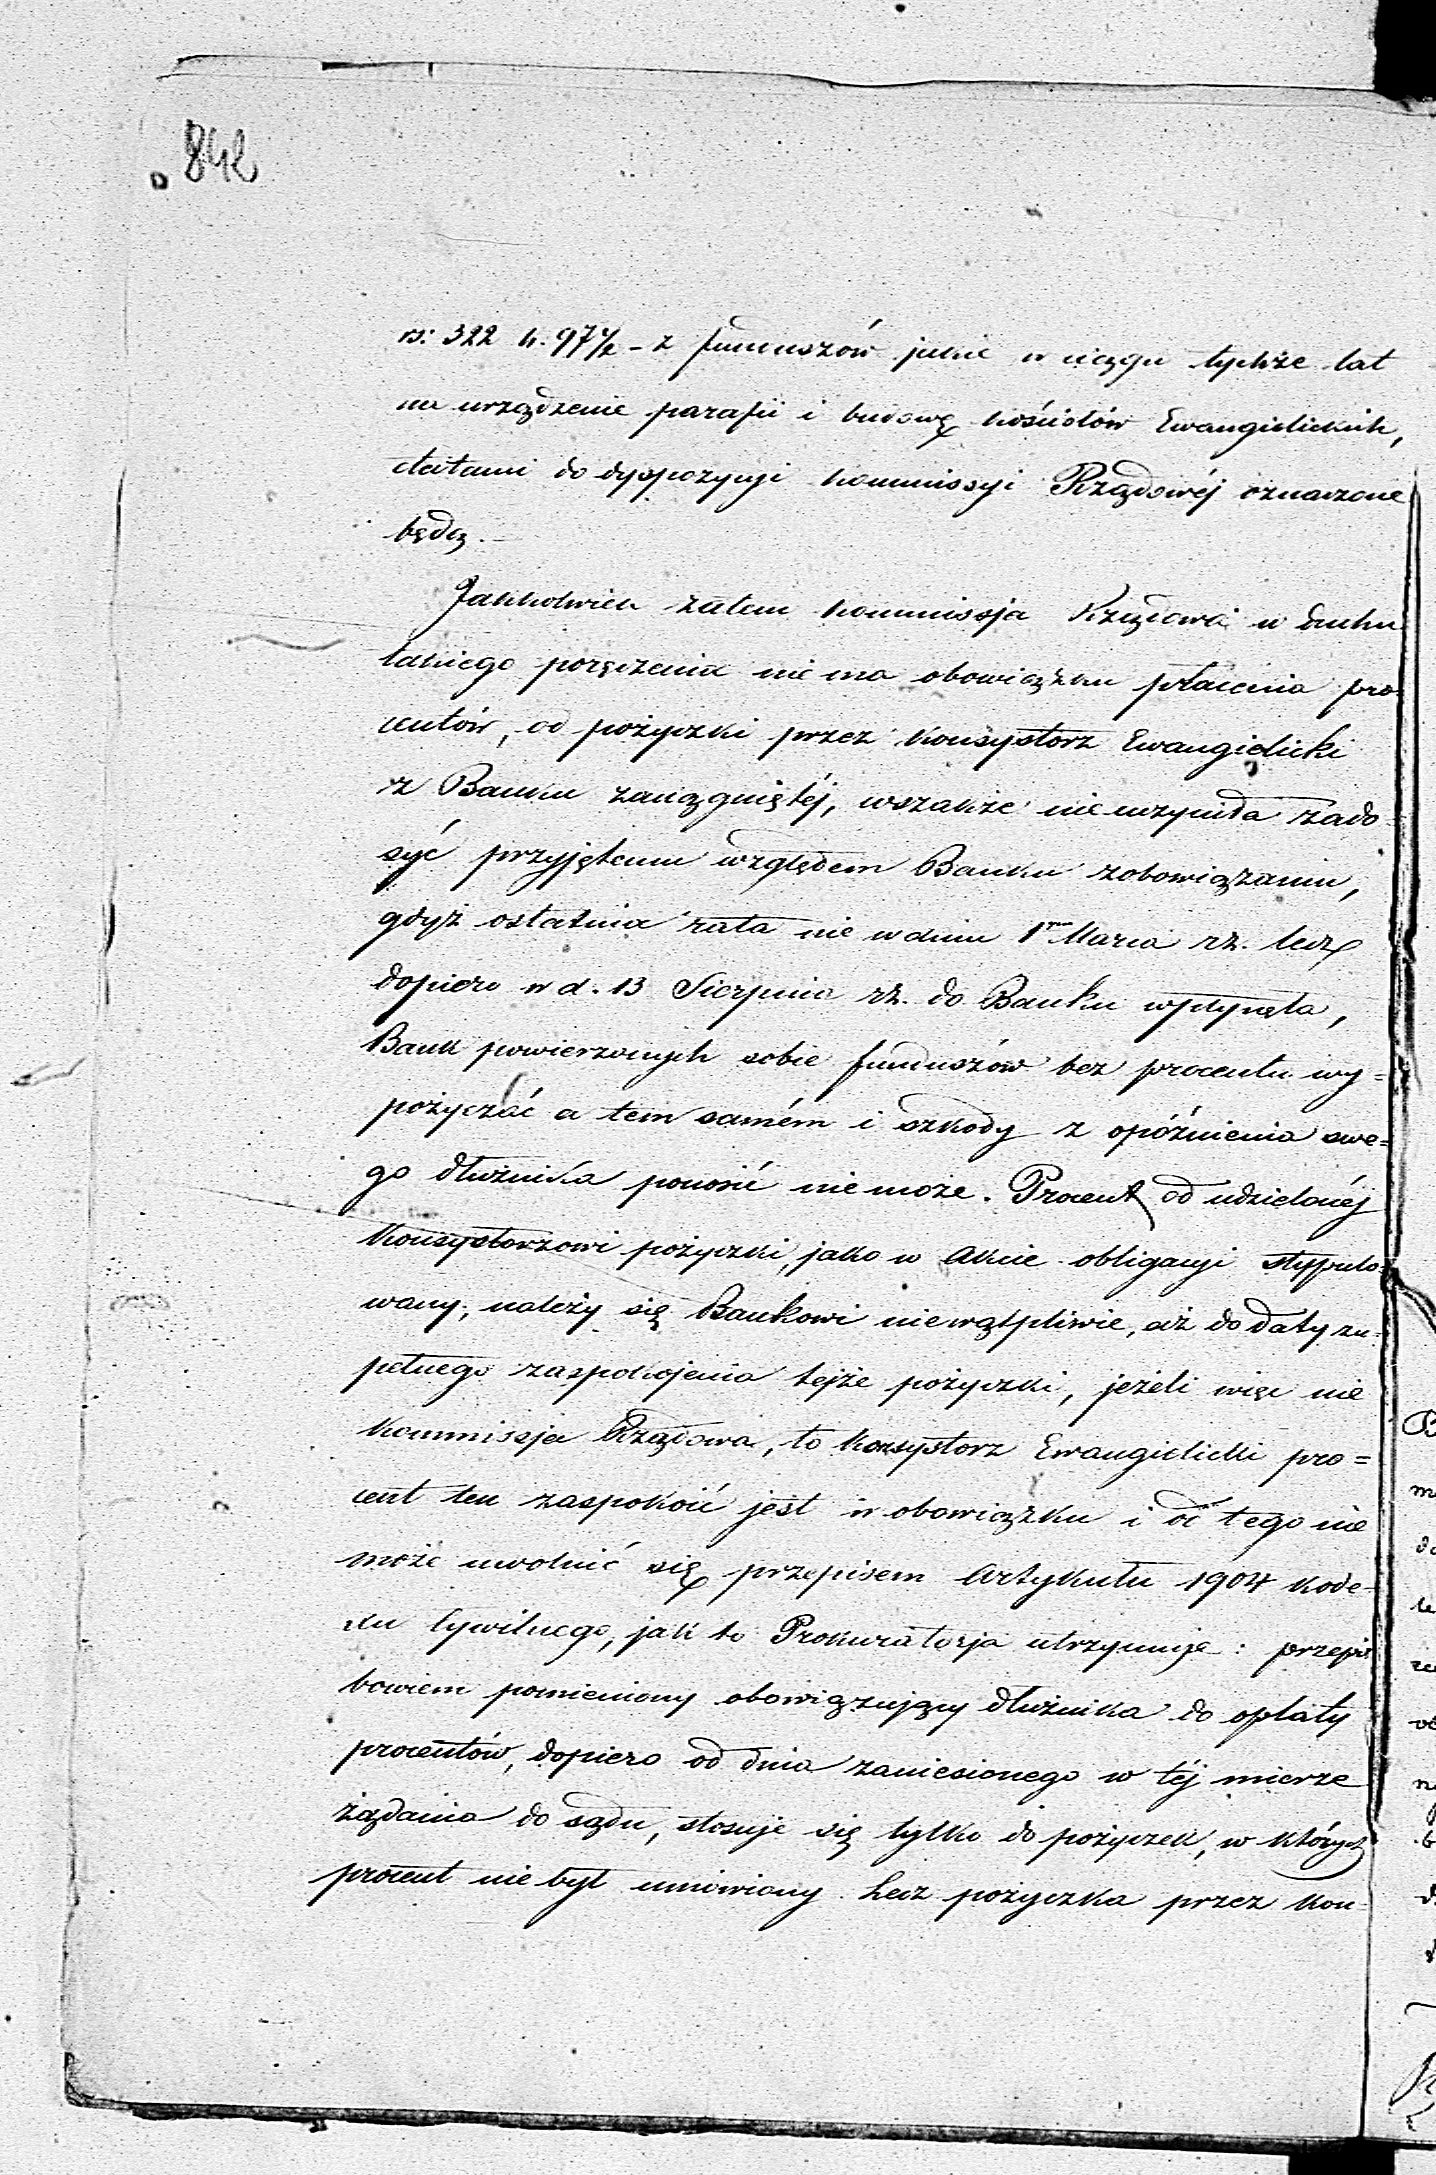 842
rs: 322 k. 97½ – z funduszów jakie w ciągu tychże lat
na urządzenie parafii i budowę kościołów Ewangielickich,
etatami do dyspozycyi Kommissyi Rządowéj oznaczone
będą. –
Jakkolwiek zatem Kommissja Rządowa w duchu
takiego poręczenia nie ma obowiązku płacenia pro-
centów, od pożyczki przez Konsystorz Ewangielicki
z Banku zaciągniętéj, wszakże nie uczyniła zado-
syć przyjętemu względem Banku zobowiązaniu,
gdyż ostatnia rata nie w dniu 1 Marca rb. lecz
dopiero w d. 13 Sierpnia rb. do Banku wpłynęła,
Bank powierzonych sobie funduszów bez procentu wy=
pożyczać a tem samém i szkody z opóźnienia swe=
go dłużnika ponosić nie może. Procent od udzielonéj
Konsystorzowi pożyczki, jako w Akcie obligacyi stypulo=
wany, należy się Bankowi niewątpliwie, aż do daty zu-
pełnego zaspokojenia tejże pożyczki, jeżeli więc nie
Kommissja Rządowa, to Konsystorz Ewangielicki pro=
cent ten zaspokoić jest w obowiązku i od tego nie
może uwolnić się przepisem Artykułu 1904 Kode-
xu Cywilnego, jak to Prokuratorja utrzymuje: przepis
bowiem pomieniony obowiązujący dłużnika do opłaty
procentów, dopiero od dnia zaniesionego w téj mierze
żądania do sądu, stosuje się tylko do pożyczek, w których
procent nie był umówiony. Lecz pożyczka przez Kon-